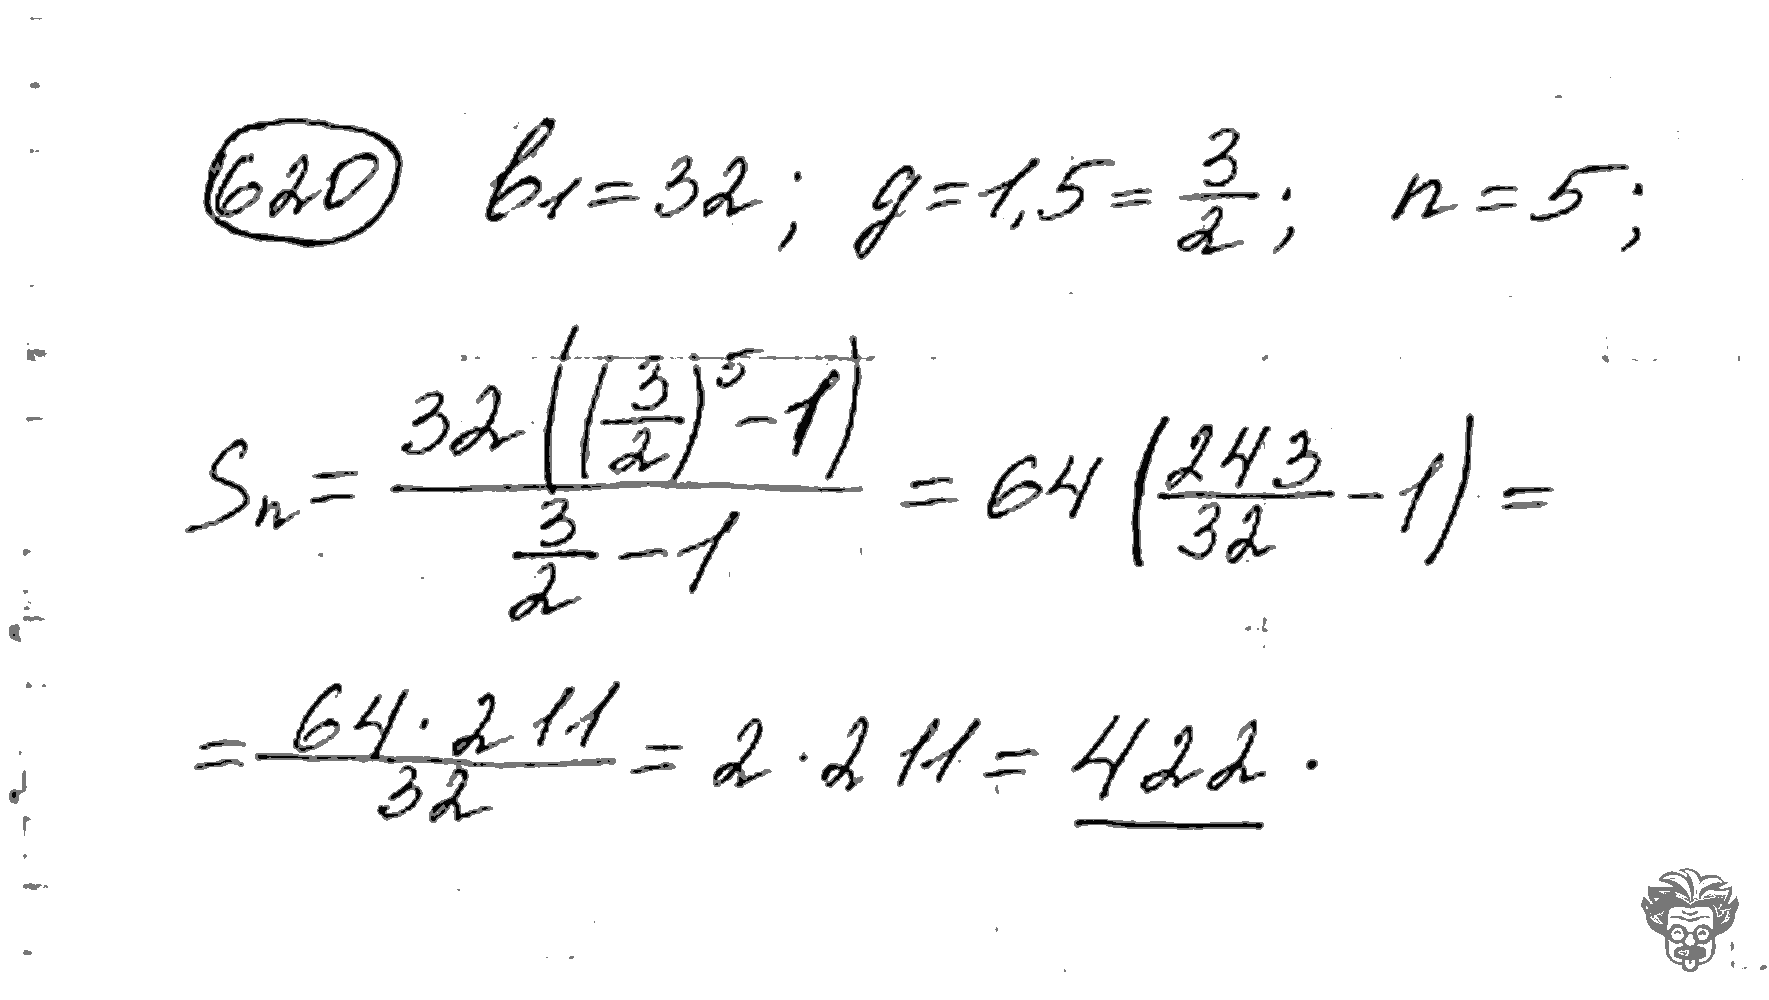 620 b₁ = 32; q = 1,5 = 3/2; n = 5;
Sₙ = 32((3/2)⁵ - 1) / (3/2 - 1) = 64(243/32 - 1) =
= 64 · 211 / 32 = 2 · 211 = 422.